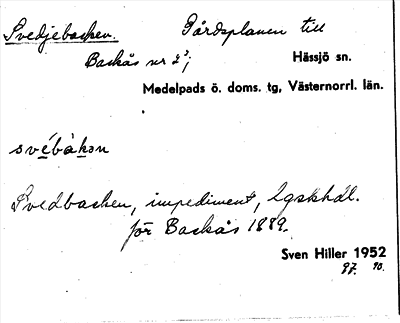 Svedjebacken. Gårdsplanen till
Backås nr 2³; Hässjö sn.
Medelpads ö. doms. tg, Västernorrl. län.
svébàkən
Svedbacken, impediment, Lgskhdl.
för Backås 1889.
Sven Hiller 1952
97. 90.